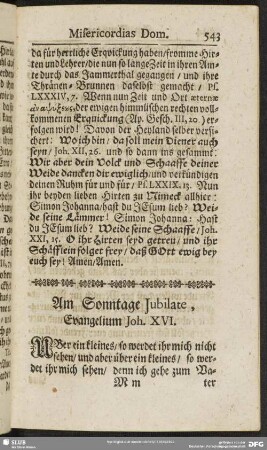 Misericordias Dom. 543
da für herrliche Erquickung haben/ fromme Hir-
ten und Lehrer/ die nun so lange Zeit in ihren Am-
te durch das Jammerthal gegangen / und ihre
Thränen-Brunnen daselbst gemacht / Pf.
LXXXIV, 7. Wenn nun Zeit und Ort æternæ
ἀναψύξεως der ewigen himmlischen rechten voll-
kommenen Erquickung (Ap. Gesch. III, 20.) er-
folgen wird! Davon der Heyland selber versi-
chert: Wo ich bin/ da soll mein Diener auch
seyn/ Joh. XII, 26. und so dann ins gesammt:
Wir aber dein Volck und Schaaffe deiner
Weide dancken dir ewiglich/ und verkündigen
deinen Ruhm für und für/ Pf. LXXIX, 13. Nun
ihr beyden lieben Hirten zu Nimeck allhier:
Simon Johanna/ hast du JEsum lieb? Wei-
de seine Lämmer! Simon Johanna: Hast
du JEsum lieb? Weide seine Schaaffe/ Joh.
XXI, 15. O ihr Hirten seyd getreu/ und ihr
Schäfflein folget frey/ daß GOtt ewig bey
euch sey! Amen/ Amen.
Am Sonntage Jubilate,
Evangelium Joh. XVI.
UBer ein kleines/ so werdet ihr mich nicht
sehen/ und aber über ein kleines/ so wer-
det ihr mich sehen/ denn ich gehe zum Va-
M m ter
SLUB
DFG